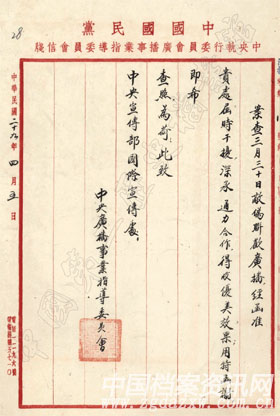 28
中國國民黨
中央執行委員會廣播事業指導委員會信牋
業查三月三十日敵偽對歐廣播經函准
貴處屆時干擾深承通力合作得收優美效果用特函謝
即希
查照為荷此致
中央宣傳部國際宣傳處
中央廣播事業指導委員會
中華民國二十九年四月五日
中国档案资讯网